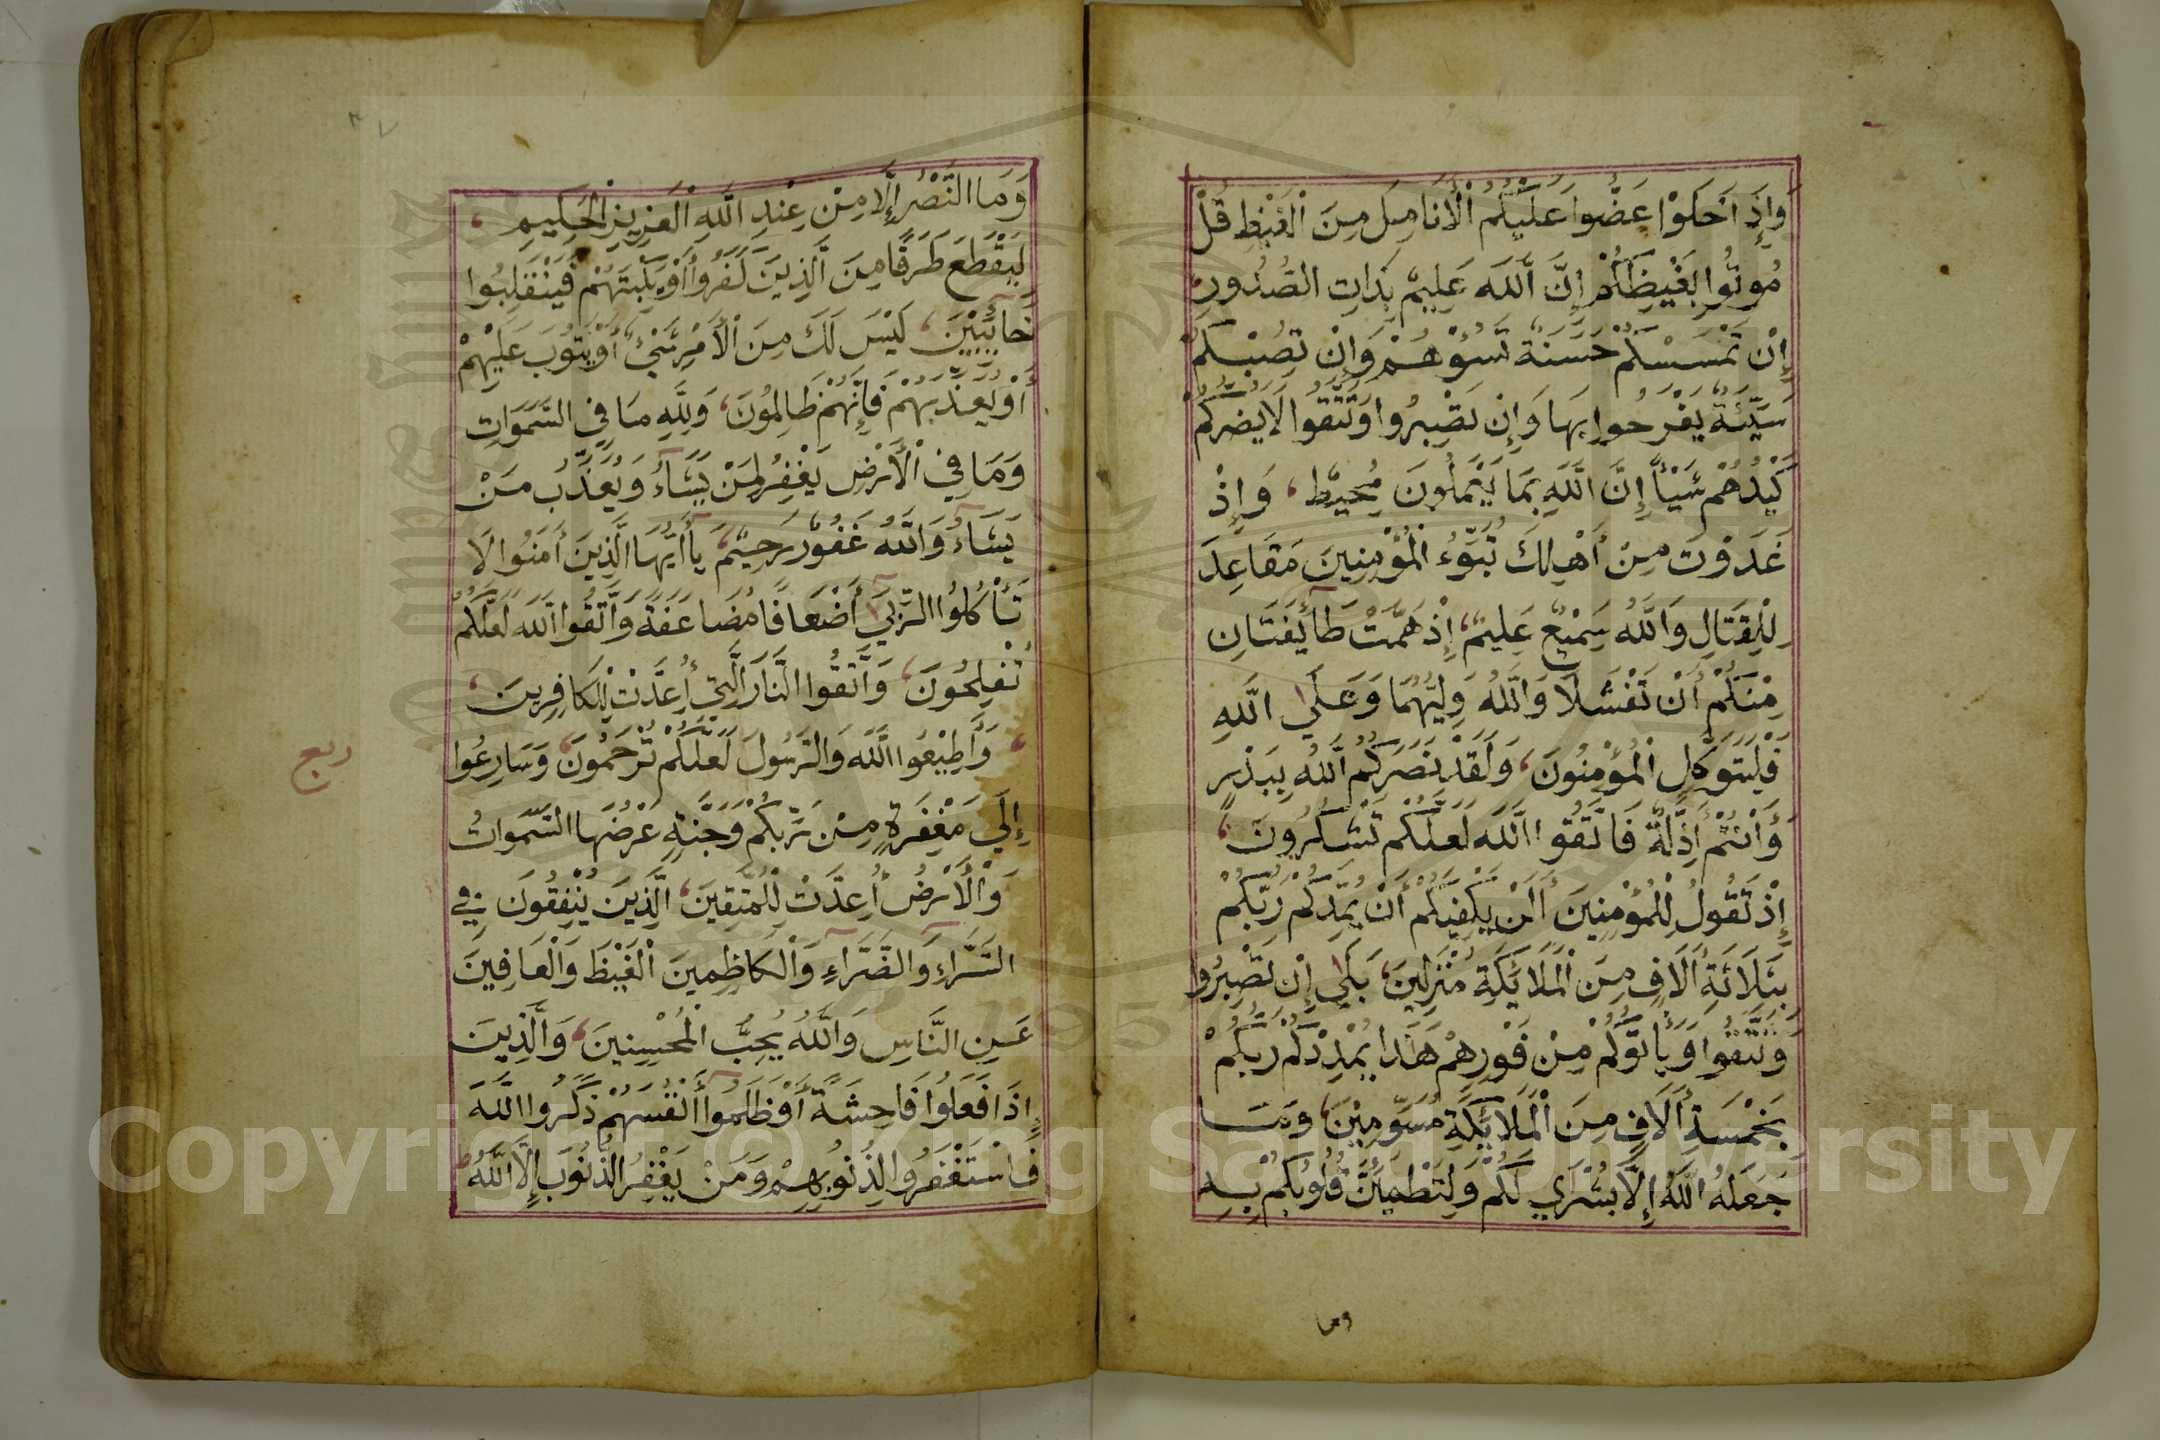 وَإِذَا خَلَوْا عَضُّوا عَلَيْكُمُ الْأَنَامِلَ مِنَ الْغَيْظِ قُلْ
مُوتُوا بِغَيْظِكُمْ إِنَّ اللَّهَ عَلِيمٌ بِذَاتِ الصُّدُورِ
إِنْ تَمْسَسْكُمْ حَسَنَةٌ تَسُؤْهُمْ وَإِنْ تُصِبْكُمْ
سَيِّئَةٌ يَفْرَحُوا بِهَا وَإِنْ تَصْبِرُوا وَتَتَّقُوا لَا يَضُرُّكُمْ
كَيْدُهُمْ شَيْئًا إِنَّ اللَّهَ بِمَا يَعْمَلُونَ مُحِيطٌ، وَإِذْ
غَدَوْتَ مِنْ أَهْلِكَ تُبَوِّءُ الْمُؤْمِنِينَ مَقَاعِدَ
لِلْقِتَالِ وَاللَّهُ سَمِيعٌ عَلِيمٌ، إِذْ هَمَّتْ طَآئِفَتَانِ
مِنْكُمْ أَنْ تَفْشَلَا وَاللَّهُ وَلِيُّهُمَا وَعَلَى اللَّهِ
فَلْيَتَوَكَّلِ الْمُؤْمِنُونَ، وَلَقَدْ نَصَرَكُمُ اللَّهُ بِبَدْرٍ
وَأَنْتُمْ أَذِلَّةٌ فَاتَّقُوا اللَّهَ لَعَلَّكُمْ تَشْكُرُونَ،
إِذْ تَقُولُ لِلْمُؤْمِنِينَ أَلَنْ يَكْفِيَكُمْ أَنْ يُمِدَّكُمْ رَبُّكُمْ
بِثَلَاثَةِ أَلَافٍ مِنَ الْمَلَائِكَةِ مُنْزَلِينَ، بَلَى إِنْ تَصْبِرُوا
وَتَتَّقُوا وَيَأْتُوكُمْ مِنْ فَوْرِهِمْ هَذَا يُمْدِدْكُمْ رَبُّكُمْ
بِخَمْسَةِ أَلَافٍ مِنَ الْمَلَائِكَةِ مُسَوِّمِينَ، وَمَا
جَعَلَهُ اللَّهُ إِلَّا بُشْرَى لَكُمْ وَلِتَطْمَئِنَّ قُلُوبُكُمْ بِهِ
وما
٣٧
وَمَا النَّصْرُ إِلَّا مِنْ عِنْدِ اللَّهِ الْعَزِيزِ الْحَكِيمِ،
لِيَقْطَعَ طَرَفًا مِنَ الَّذِينَ كَفَرُوا أَوْ يَكْبِتَهُمْ فَيَنْقَلِبُوا
خَآئِبِينَ، لَيْسَ لَكَ مِنَ الْأَمْرِ شَيْءٌ أَوْ يَتُوبَ عَلَيْهِمْ
أَوْ يُعَذِّبَهُمْ فَإِنَّهُمْ ظَالِمُونَ، وَلِلَّهِ مَا فِي السَّمَوَاتِ
وَمَا فِي الْأَرْضِ يَغْفِرُ لِمَنْ يَشَآءُ وَيُعَذِّبُ مَنْ
يَشَآءُ وَاللَّهُ غَفُورٌ رَحِيمٌ، يَا أَيُّهَا الَّذِينَ أَمَنُوا لَا
تَأْكُلُوا الرِّبَى أَضْعَافًا مُضَاعَفَةً وَاتَّقُوا اللَّهَ لَعَلَّكُمْ
تُفْلِحُونَ، وَاتَّقُوا النَّارَ الَّتِي أُعِدَّتْ لِلْكَافِرِينَ،
وَأَطِيعُوا اللَّهَ وَالرَّسُولَ لَعَلَّكُمْ تُرْحَمُونَ، وَسَارِعُوا
ربع
إِلَى مَغْفِرَةٍ مِنْ رَبِّكُمْ وَجَنَّةٍ عَرْضُهَا السَّمَوَاتُ
وَالْأَرْضُ أُعِدَّتْ لِلْمُتَّقِينَ، الَّذِينَ يُنْفِقُونَ فِي
السَّرَّآءِ وَالضَّرَّآءِ وَالْكَاظِمِينَ الْغَيْظَ وَالْعَافِينَ
عَنِ النَّاسِ وَاللَّهُ يُحِبُّ الْمُحْسِنِينَ، وَالَّذِينَ
إِذَا فَعَلُوا فَاحِشَةً أَوْ ظَلَمُوا أَنْفُسَهُمْ ذَكَرُوا اللَّهَ
فَاسْتَغْفَرُوا لِذُنُوبِهِمْ وَمَنْ يَغْفِرُ الذُّنُوبَ إِلَّا اللَّهُ
Copyright © King Saud University